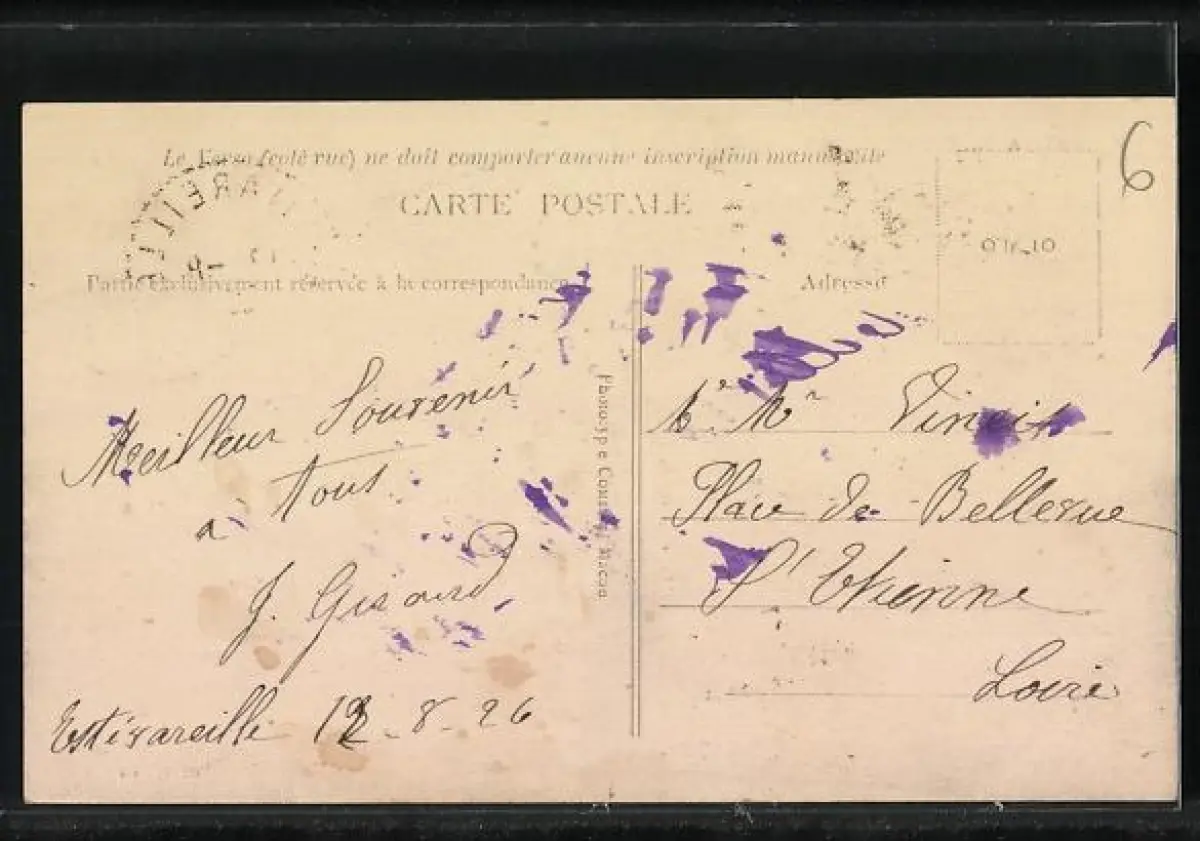 Le Verso (côté vue) ne doit comporter aucune inscription manuscrite
CARTE POSTALE
6
Partie exclusivement réservée à la correspondance
Adresse
Meilleur Souvenir
a tous
J. Girard
Estivareille 12-8-26
Phototypie Macon
Place de Bellevue
St Etienne
Loire